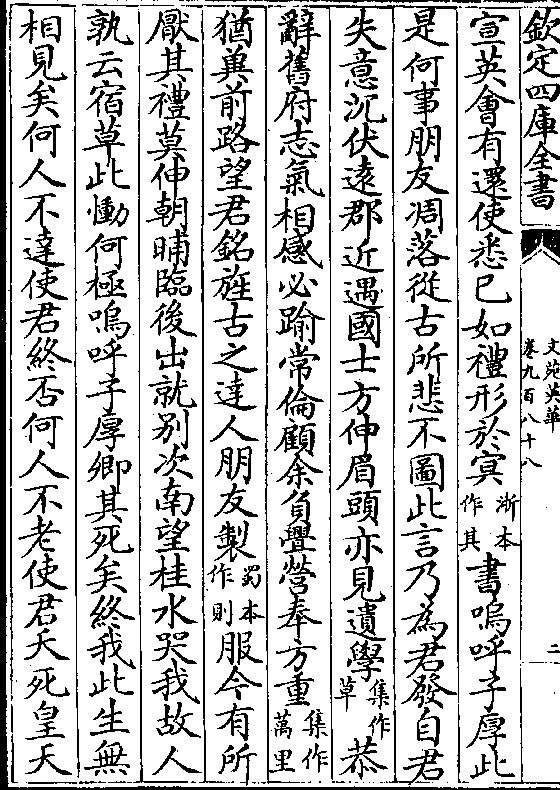 欽定四庫全書
文苑英華
卷九百八十八
二
宣英會有還使悉已如禮形於㝠浙本作其書嗚呼子厚此
是何事朋友凋落從古所悲不圖此言乃為君發自君
失意沉伏逺郡近遇國士方伸眉頭亦見遺學集作草恭
辭舊府志氣相感必踰常倫顧余負舋營奉方重集作萬里
猶冀前路望君銘旌古之達人朋友製蜀本作則服今有所
厭其禮莫伸朝晡臨後出就别次南望桂水哭我故人
孰云宿草此慟何極嗚呼子厚卿其死矣終我此生無
相見矣何人不達使君終否何人不老使君夭死皇天